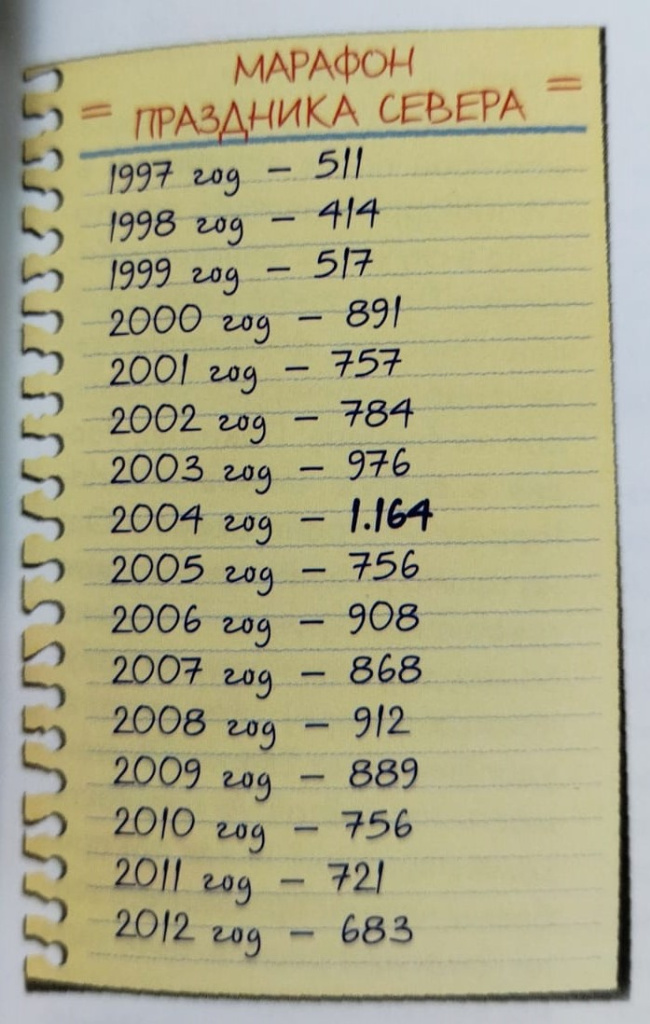 МАРАФОН
= ПРАЗДНИКА СЕВЕРА =
1997 год – 511
1998 год – 414
1999 год – 517
2000 год – 891
2001 год – 757
2002 год – 784
2003 год – 976
2004 год – 1.164
2005 год – 756
2006 год – 908
2007 год – 868
2008 год – 912
2009 год – 889
2010 год – 756
2011 год – 721
2012 год – 683